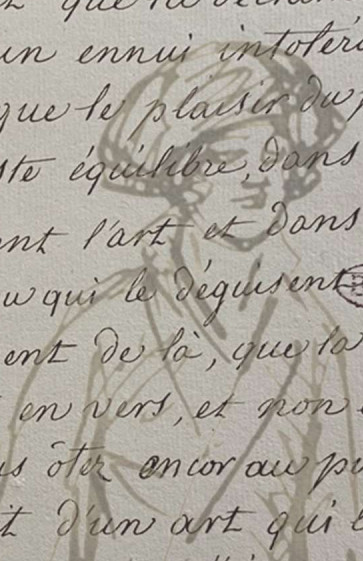 que la
un ennui
que le plaisir du
équilibre, dans
l'art et dans
qui le déguisent
de là, que la
en vers, et non
ôter encor au
d'un art qui